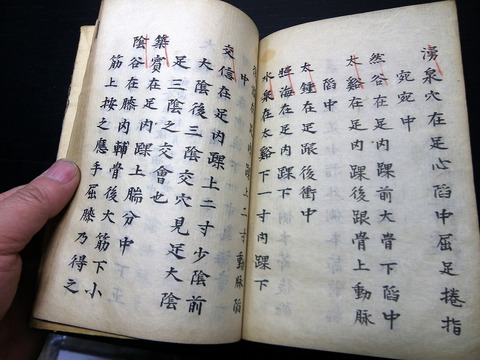 湧泉穴在足心陷中屈足捲指
宛宛中
然谷在足內踝前大骨下陷中
太谿在足內踝後跟骨上動脈
陷中
太鍾在足跟後衝中
照海在足內踝下
水泉在太谿下一寸內踝下
踝上二寸動脈陷
中
交信在足內踝上二寸少陰前
大陰後三陰交穴見足大陰
足三陰之交會也
築賓在足內踝上腨分中
陰谷在膝內輔骨後大筋下小
筋上按之應手屈膝乃得之